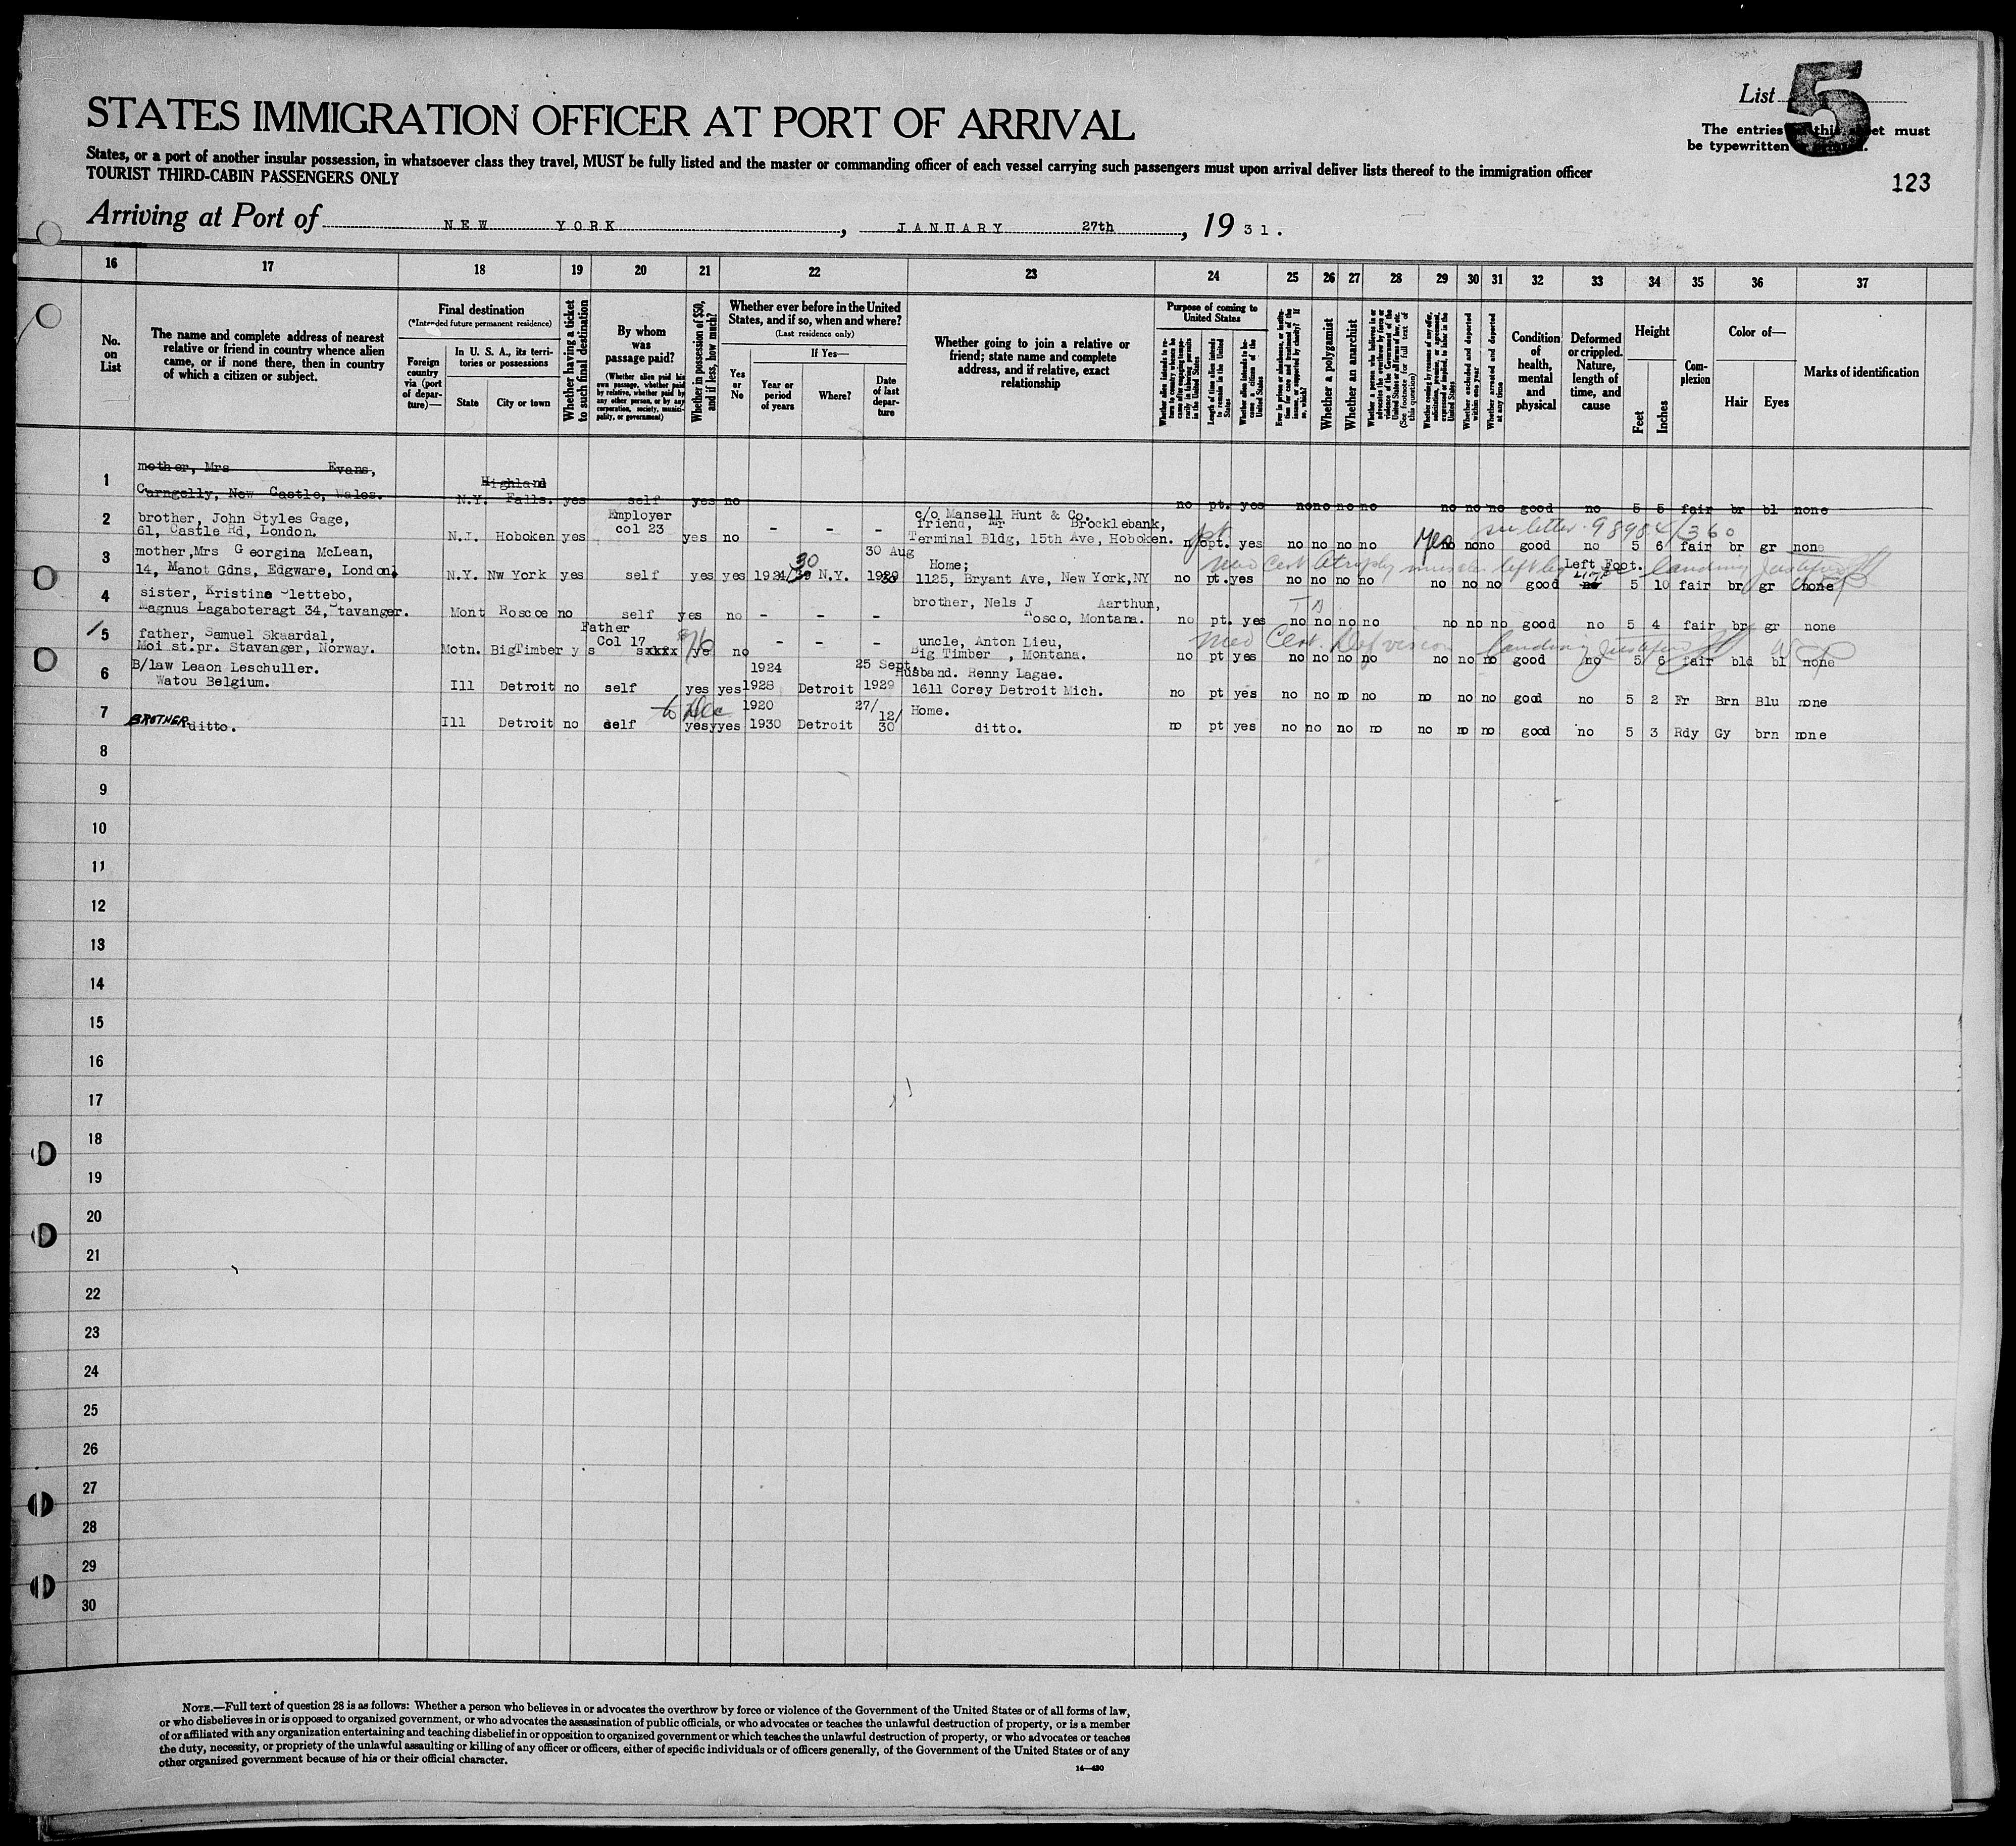 List 5
STATES IMMIGRATION OFFICER AT PORT OF ARRIVAL
The entries this sheet must
be typewritten
States, or a port of another insular possession, in whatsoever class they travel, MUST be fully listed and the master or commanding officer of each vessel carrying such passengers must upon arrival deliver lists thereof to the immigration officer
TOURIST THIRD-CABIN PASSENGERS ONLY
123
Arriving at Port of NEW YORK, JANUARY 27th, 1931.
16 17 18 19 20 21 22 23 24 25 26 27 28 29 30 31 32 33 34 35 36 37
No. on List
The name and complete address of nearest relative or friend in country whence alien came, or if none there, then in country of which a citizen or subject.
Final destination
(*Intended future permanent residence)
Foreign country via (port of departure)—
In U. S. A., its territories or possessions
State
City or town
Whether having a ticket to such final destination
By whom was passage paid?
(Whether alien paid his own passage, whether paid by relative, whether paid by any other person, or by any corporation, society, municipality, or government)
Whether in possession of $50, and if less, how much?
Whether ever before in the United States, and if so, when and where?
(Last residence only)
Yes or No
If Yes—
Year or period of years
Where?
Date of last departure
Whether going to join a relative or friend; state name and complete address, and if relative, exact relationship
Purpose of coming to United States
Whether alien intends to return to country whence he came after engaging temporarily in laboring pursuits in the United States
Length of time alien intends to remain in the United States
Whether alien intends to become a citizen of the United States
Ever in prison or almshouse, or institution for care and treatment of the insane, or supported by charity? If so, which?
Whether a polygamist
Whether an anarchist
Whether a person who believes in or advocates the overthrow by force or violence of the Government of the United States or all forms of law, etc. (See footnote for full text of this question)
Whether coming by reason of any offer, solicitation, promise, or agreement, expressed or implied, to labor in the United States
Whether excluded and deported within one year
Whether arrested and deported at any time
Condition of health, mental and physical
Deformed or crippled. Nature, length of time, and cause
Height
Feet
Inches
Complexion
Color of—
Hair
Eyes
Marks of identification
1 mother, Mrs Evans,
Carngelly, New Castle, Wales. N.Y. Highland Falls. yes self yes no no pt. yes no no no no no no no good 5 5 fair br bl none
2 brother, John Styles Gage,
61, Castle Rd, London. N.J. Hoboken yes Employer col 23 yes no - - - c/o Mansell Hunt & Co.
friend, Mr Brocklebank,
Terminal Bldg, 15th Ave, Hoboken. no pt. yes no no no no Yes no no good no 5 6 fair br gr none
see letter 98984/360
3 mother, Mrs Georgina McLean,
14, Manot Gdns, Edgware, London. N.Y. Nw York yes self yes yes 1924/30 N.Y. 30 Aug 1930 Home;
1125, Bryant Ave, New York, NY no pt. yes no no no no no no no good Left Foot. 5 10 fair br gr none
Med Cert Atrophy muscles left leg landing
4 sister, Kristine lettebo,
Magnus Lagaboteragt 34, Stavanger. Mont Roscoe no self yes no - - - brother, Nels J Aarthun,
Rosco, Montana. no pt. yes no no no no no no no good no 5 4 fair br gr none
5 father, Samuel Skaardal,
Moi st.pr. Stavanger, Norway. Motn. BigTimber y s Father Col 17 ye no - - - uncle, Anton Lieu,
Big Timber , Montana. no pt yes no no no no no no no good no 5 6 fair bld bl none
Med Cert. Def vision landing
6 B/law Leaon Leschuller.
Watou Belgium. Ill Detroit no self yes yes 1924 1928 Detroit 25 Sept. 1929 Husband. Renny Lagae.
1611 Corey Detroit Mich. no pt yes no no no no no no no good no 5 2 Fr Brn Blu none
7 BROTHER ditto. Ill Detroit no self yes yes 1920 1930 Detroit 27/12/30 Home.
ditto. no pt yes no no no no no no no good no 5 3 Rdy Gy brn none
8
9
10
11
12
13
14
15
16
17
18
19
20
21
22
23
24
25
26
27
28
29
30
NOTE.—Full text of question 28 is as follows: Whether a person who believes in or advocates the overthrow by force or violence of the Government of the United States or of all forms of law,
or who disbelieves in or is opposed to organized government, or who advocates the assassination of public officials, or who advocates or teaches the unlawful destruction of property, or is a member
of or affiliated with any organization entertaining and teaching disbelief in or opposition to organized government or which teaches the unlawful destruction of property, or who advocates or teaches
the duty, necessity, or propriety of the unlawful assaulting or killing of any officer or officers, either of specific individuals or of officers generally, of the Government of the United States or of any
other organized government because of his or their official character.
14—430